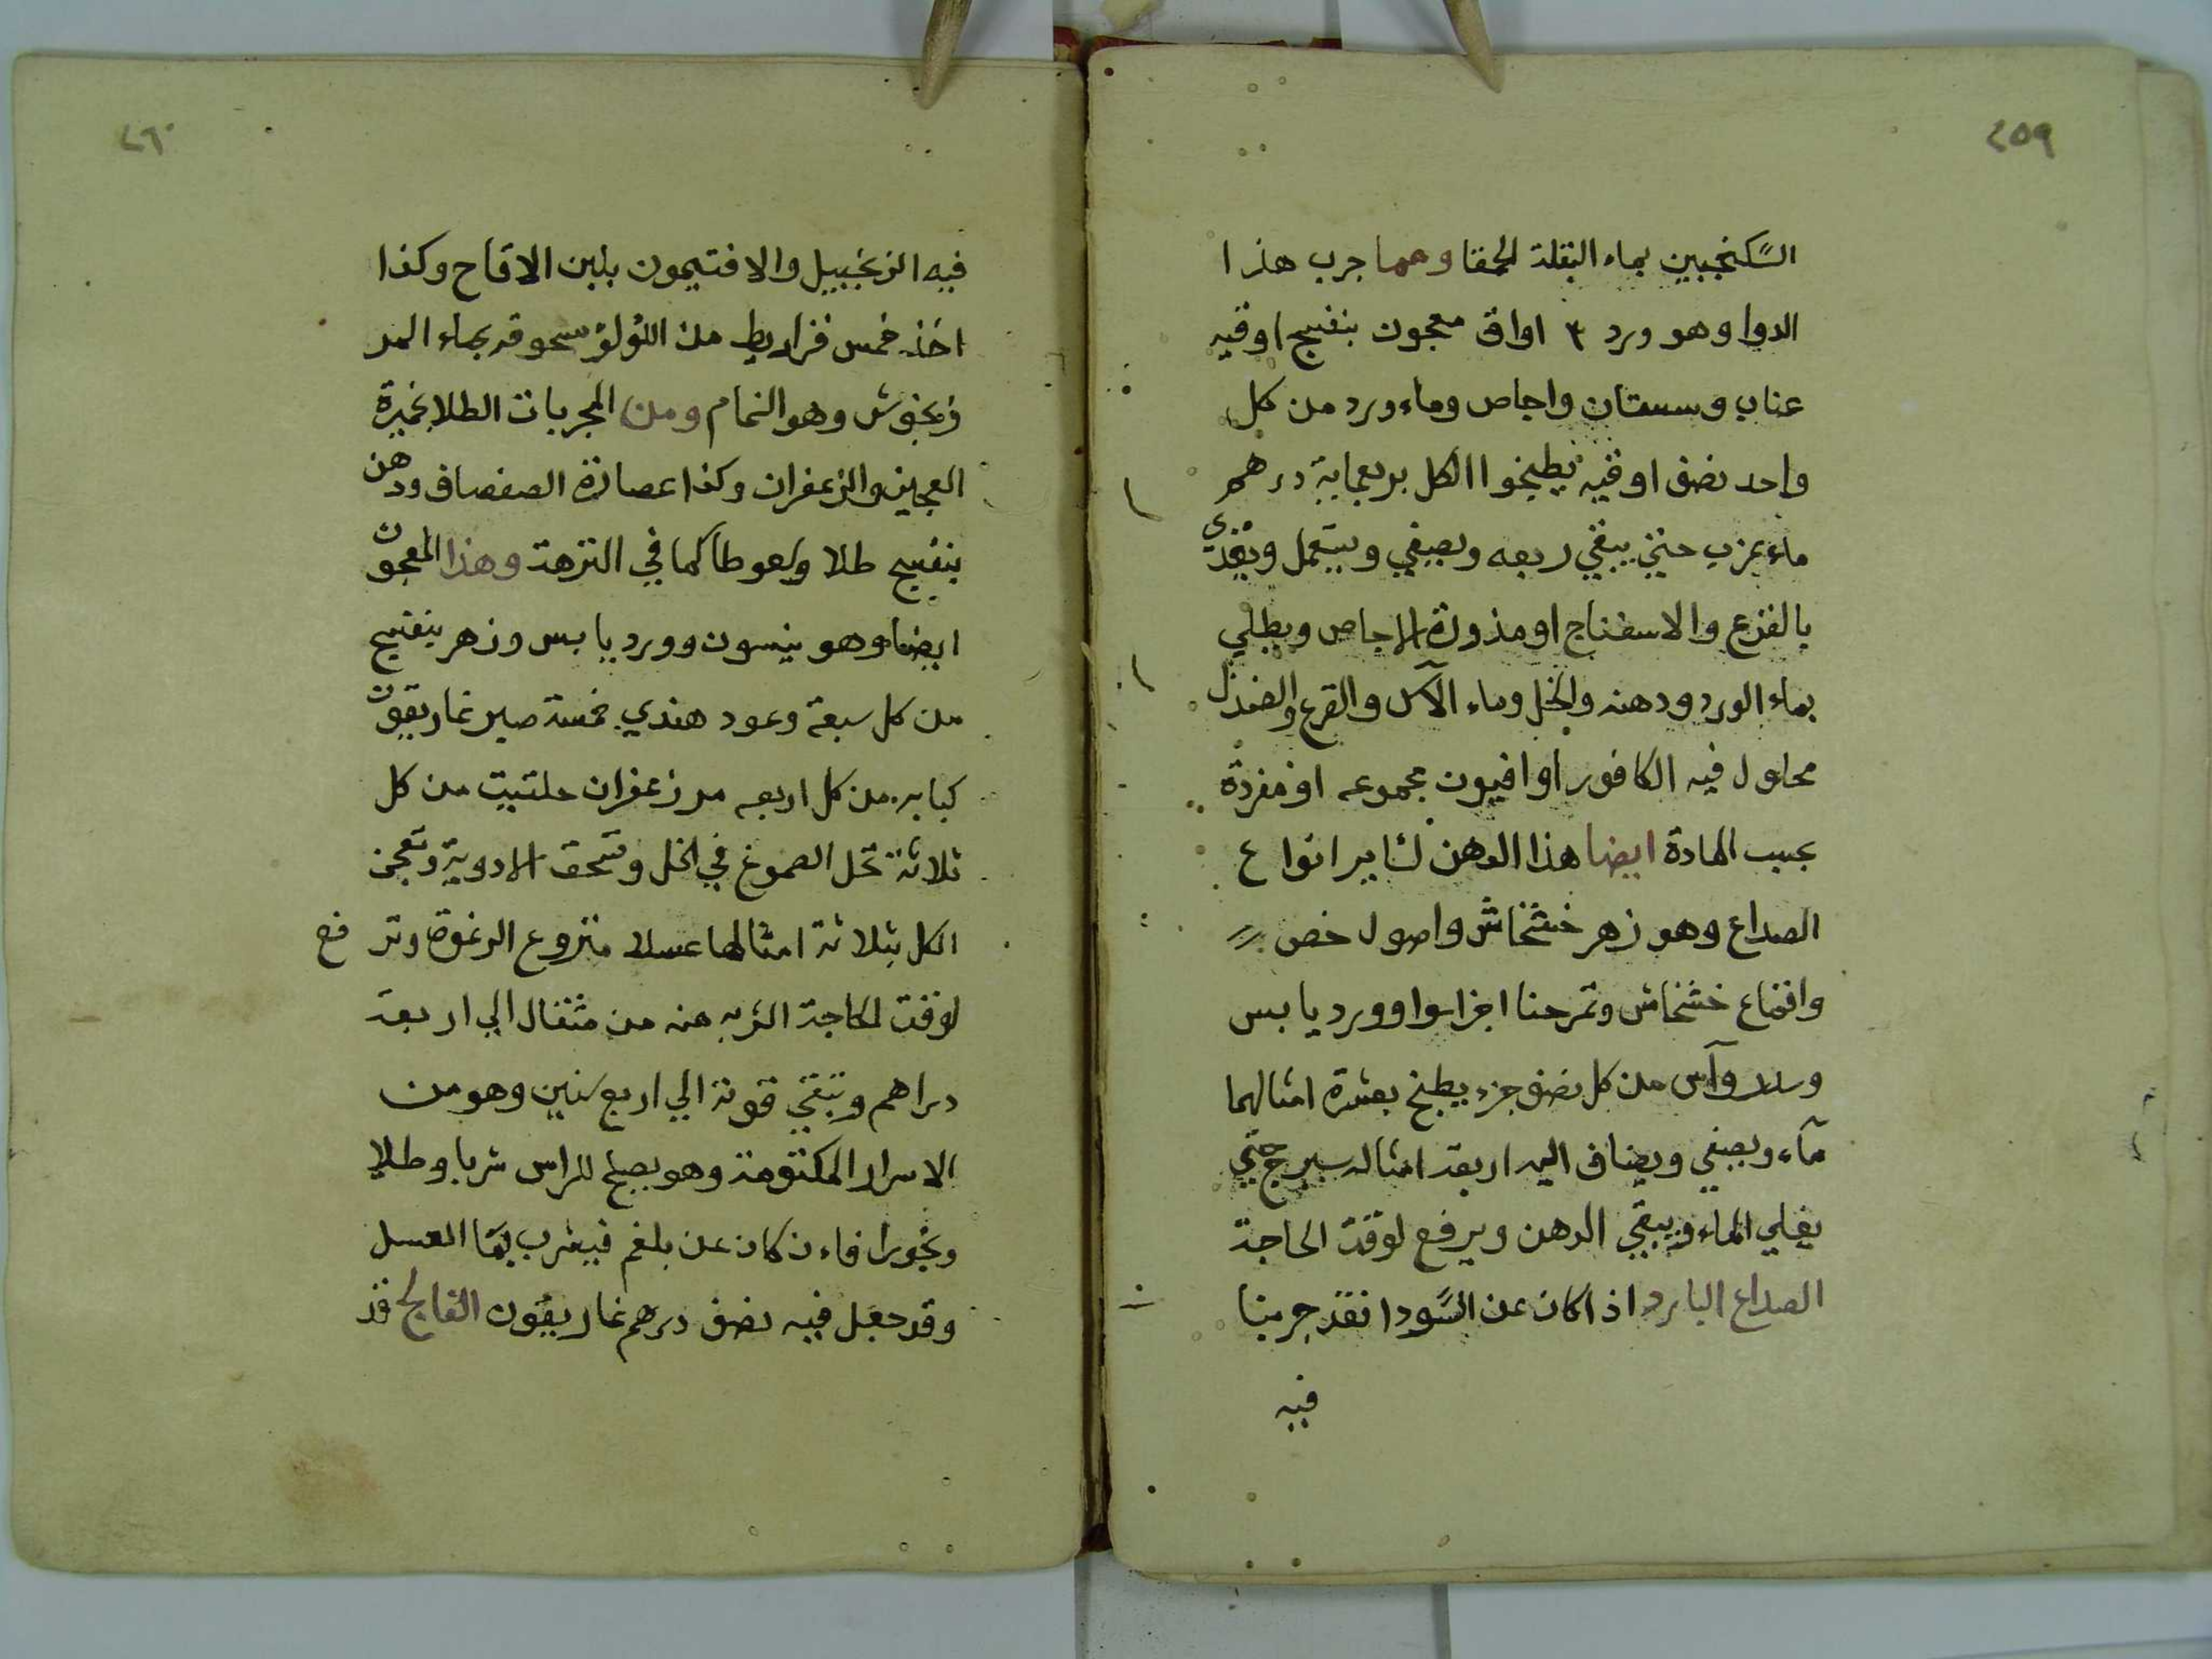 ٢٥٩
السكنجبين بماء البقلة الحمقا ومما جرب هذا
الدوا وهو ورد ٣ اواق معجون بنفسج اوقيه
عناب وسبستان واجاص وماء ورد من كل
واحد نصف اوقيه يطبخوا الكل بربعماية درهم
ماء عزب حتي يبقي ربعه ويصفي ويستعمل ويغذي
بالقرع والاسفناج او مذورة الاجاص ويطلي
بماء الورد ودهنه والخل وماء الآس والقرع والصندل
محلول فيه الكافور او افيون مجموعه او مفردة
بحسب المادة ايضا هذا الدهن لساير انواع
الصداع وهو زهر خشخاش واصول خس
واقماع خشخاش وتمرحنا اجزا سوا وورد يابس
وسدر وآس من كل نصف جزء يطبخ بعشرة امثالهما
مآء ويصفي ويضاف اليه اربعة امثاله سيرج حتي
يغلي الماء ويبقي الدهن ويرفع لوقت الحاجة
الصداع البارد اذا كان عن السودا فقد جربنا
فيه
٢٦٠
فيه الزنجبيل والافتيمون بلبن الاقاح وكذا
اخذ خمس قراريط من اللؤلؤ سحوقه بماء المر
زنجوش وهو النمام ومن المجربات الطلا بخميرة
العجين والزعفران وكذا عصارة الصفصاف ودهن
بنفسج طلا وسعوطا كما في النزهة وهذا المعجون
ايضا وهو ينسون وورد يابس وزهر بنفسج
من كل سبعة وعود هندي خمسة صبر غاريقون
كبابه من كل اربعه مر زعفران حلتيت من كل
ثلاثة تحل الصموغ في الخل وتسحق الادوية وتعجن
الكل بثلاثة امثالها عسلا منزوع الرغوة وترفع
لوقت الحاجة الشربه منه من مثقال الي اربعة
دراهم وتبقي قوته الي اربع سنين وهو من
الاسرار المكتومة وهو يصلح للراس شربا وطلا
وبخورا فاءن كان عن بلغم فيشرب بما العسل
وقد جعل فيه نصف درهم غاريقون الفالج قد